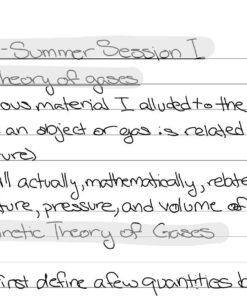 -Summer Session I
heory of gases
ous material I alluded to the
an object or gas is related
ure)
ll actually, mathematically, relate
ture, pressure, and volume of
netic Theory of Gases
irst define a few quantities b